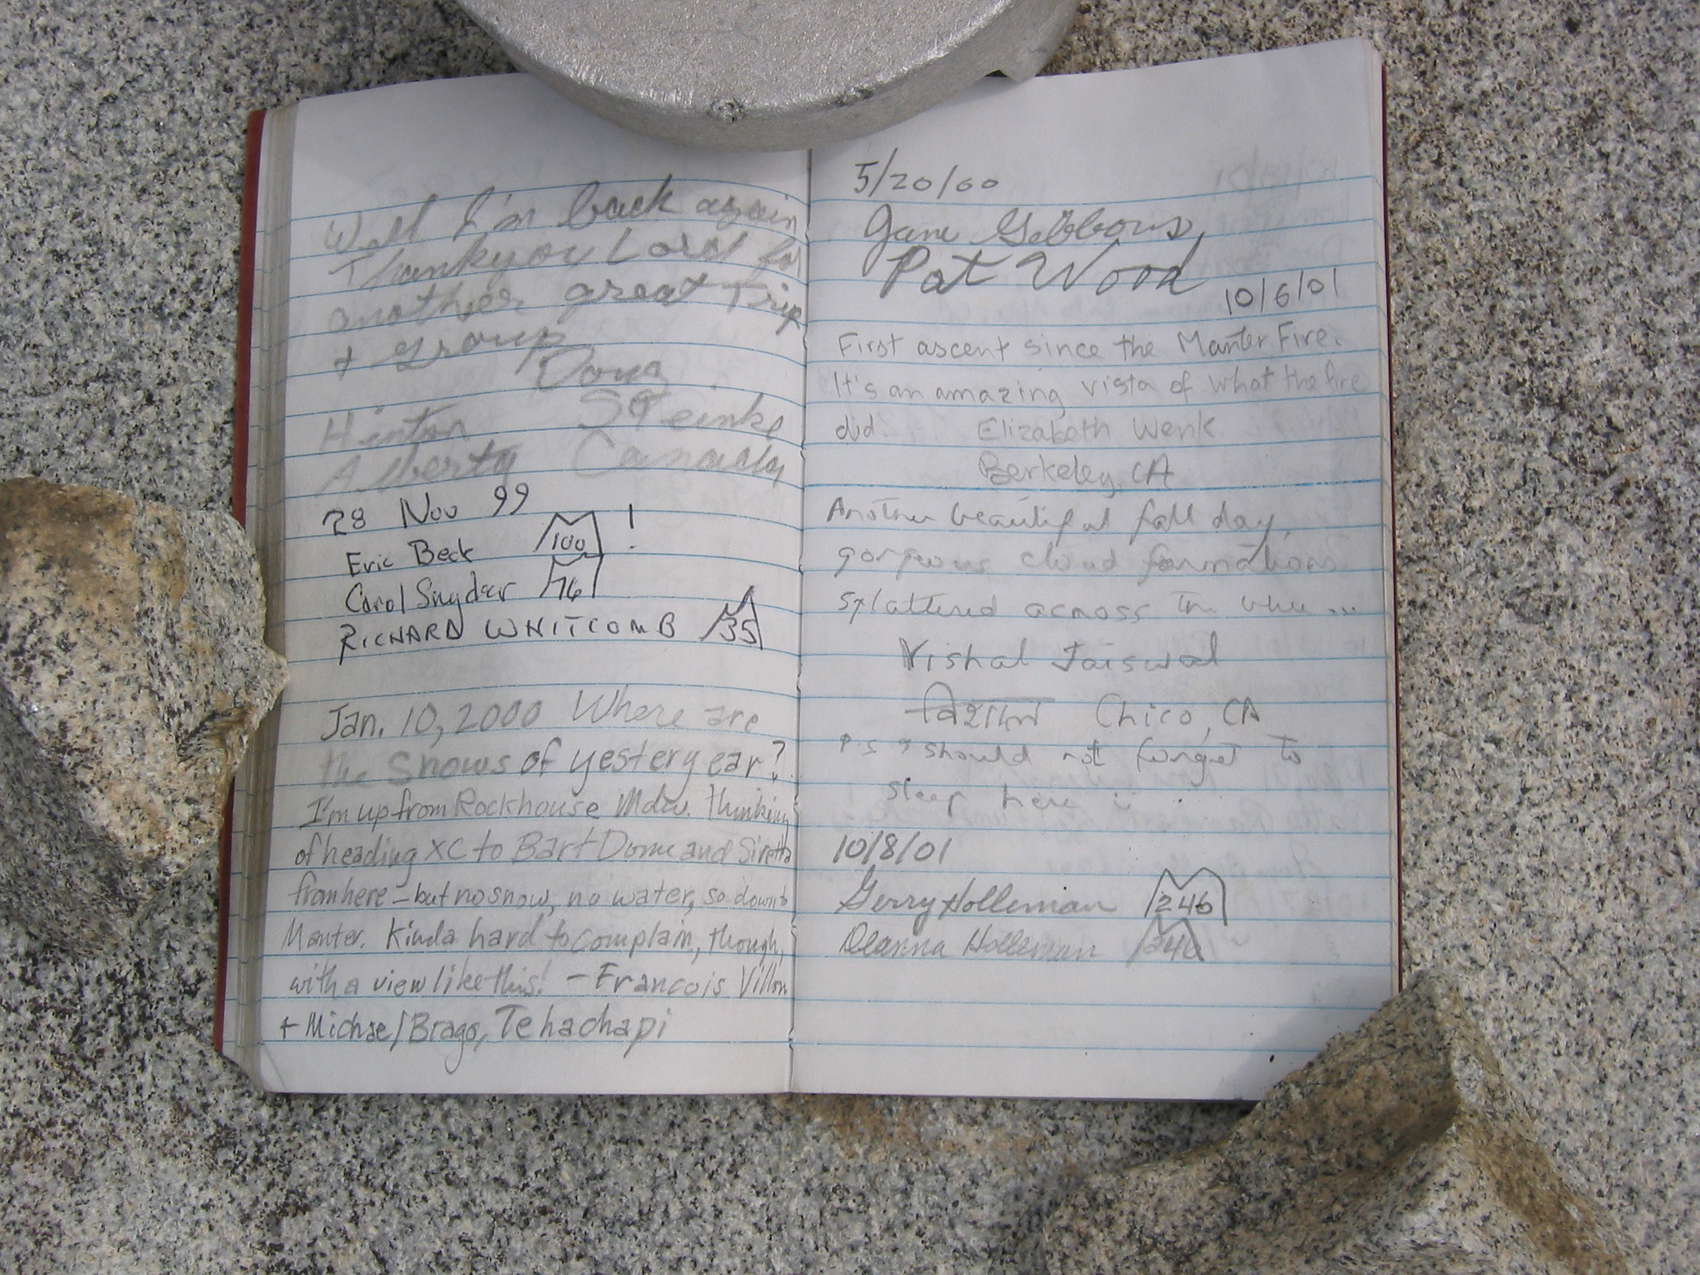 Well I'm back again
Thankyou Lord for
another great Trip
+ group
Doug
Hinton Steinke
Alberta Canada
28 Nov 99
Eric Beck 100 !
Carol Snyder 76
RICHARD WHITCOMB 35
Jan. 10, 2000 Where are
the snows of yesteryear?
I'm up from Rockhouse Mdw. thinking
of heading XC to Bart Dome and Siretta
from here – but no snow, no water, so down to
Manter. Kinda hard to complain, though,
with a view like this! – Francois Villon
+ Michael Brago, Tehachapi
5/20/00
Jane Gibbons,
Pat Wood
10/6/01
First ascent since the Manter Fire.
It's an amazing vista of what the fire
did. Elizabeth Wenk
Berkeley, CA
Another beautiful fall day,
gorgeous cloud formations
splattered across the blue ...
Vishal Jaiswal
Chico, CA
P S I should not forget to
sleep here
10/8/01
Gerry Holleman 246
Deanna Holleman 246